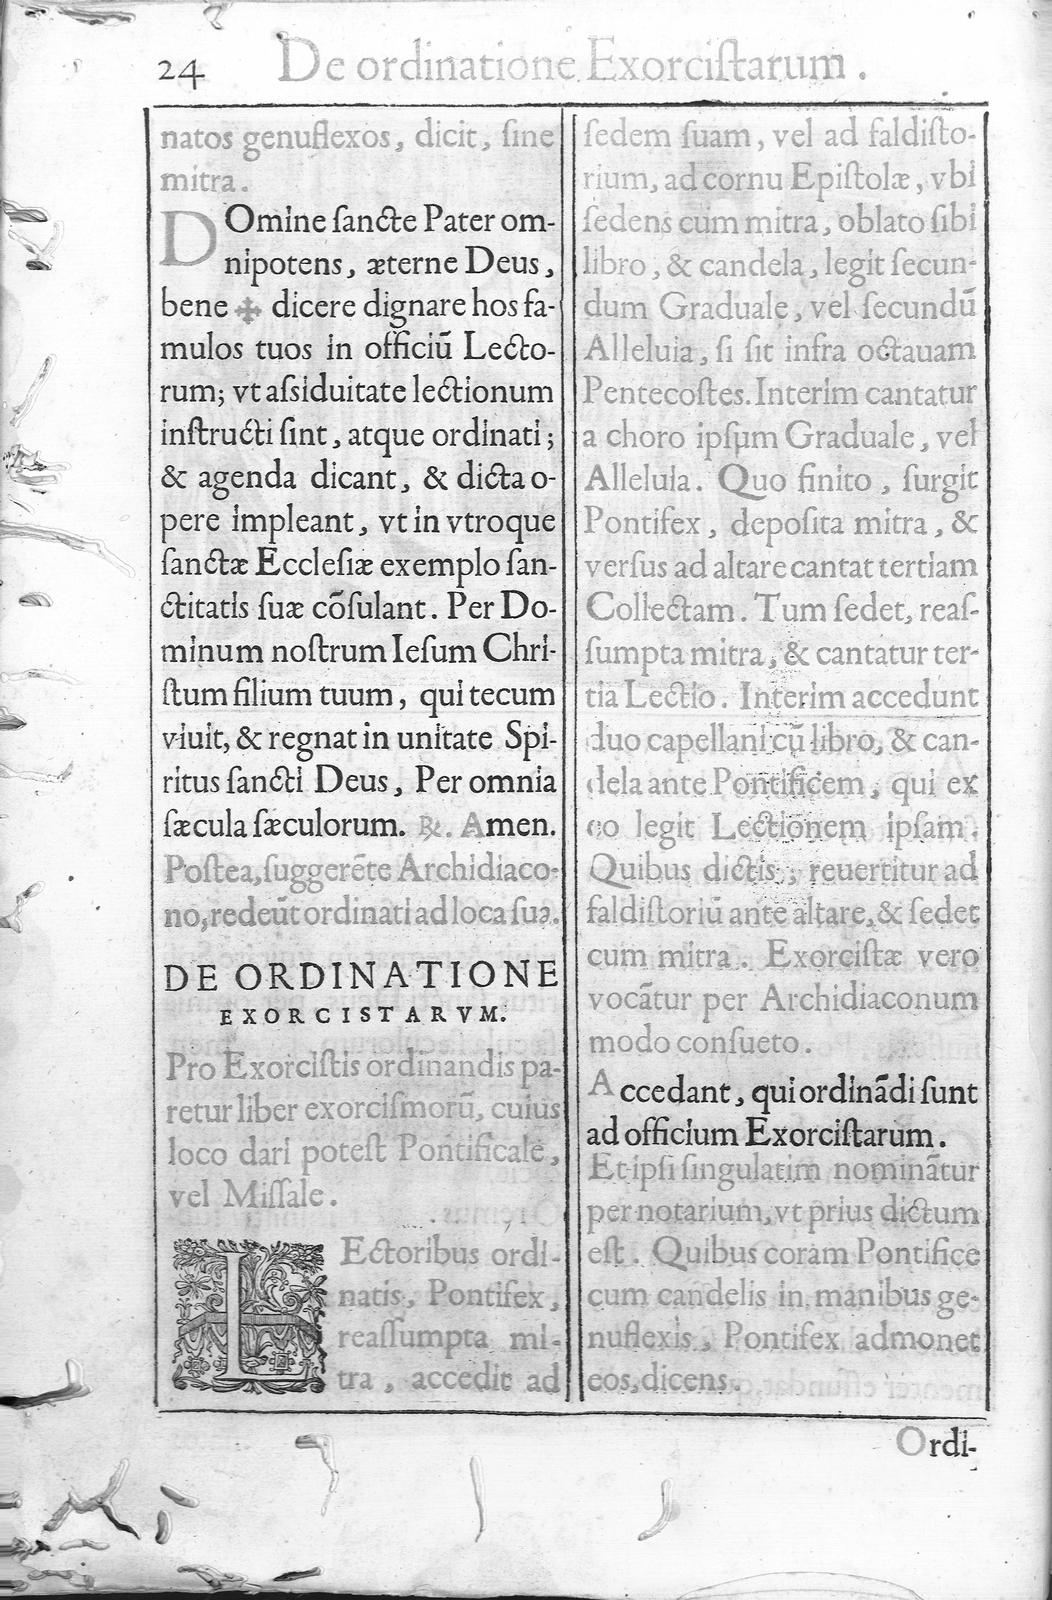 24 De ordinatione Exorciſtarum.
natos genuflexos, dicit, ſine
mitra.
DOmine ſancte Pater om-
nipotens, æterne Deus,
bene ✠ dicere dignare hos fa-
mulos tuos in officiū Lecto-
rum; vt aſsiduitate lectionum
inſtructi ſint, atque ordinati;
& agenda dicant, & dicta o-
pere impleant, vt in vtroque
ſanctæ Eccleſiæ exemplo ſan-
ctitatis ſuæ cōſulant. Per Do-
minum noſtrum Ieſum Chri-
ſtum filium tuum, qui tecum
viuit, & regnat in unitate Spi-
ritus ſancti Deus, Per omnia
ſæcula ſæculorum. ℞. Amen.
Poſtea, ſuggerēte Archidiaco-
no, redeūt ordinati ad loca ſua.
DE ORDINATIONE
EXORCISTARVM.
Pro Exorciſtis ordinandis pa-
retur liber exorciſmorū, cuius
loco dari poteſt Pontificale,
vel Miſſale.
LEctoribus ordi-
natis, Pontifex,
reaſſumpta mi-
tra, accedit ad
ſedem ſuam, vel ad faldiſto-
rium, ad cornu Epiſtolæ, vbi
ſedens cum mitra, oblato ſibi
libro, & candela, legit ſecun-
dum Graduale, vel ſecundū
Alleluia, ſi ſit infra octauam
Pentecoſtes. Interim cantatur
a choro ipſum Graduale, vel
Alleluia. Quo finito, ſurgit
Pontifex, depoſita mitra, &
verſus ad altare cantat tertiam
Collectam. Tum ſedet, reaſ-
ſumpta mitra, & cantatur ter-
tia Lectio. Interim accedunt
duo capellani cū libro, & can-
dela ante Pontificem, qui ex
eo legit Lectionem ipſam.
Quibus dictis, reuertitur ad
faldiſtoriū ante altare, & ſedet
cum mitra. Exorciſtæ vero
vocātur per Archidiaconum
modo conſueto.
Accedant, qui ordinādi ſunt
ad officium Exorciſtarum.
Et ipſi ſingulatim nominātur
per notarium, vt prius dictum
eſt. Quibus coram Pontifice
cum candelis in manibus ge-
nuflexis, Pontifex admonet
eos, dicens.
Ordi-